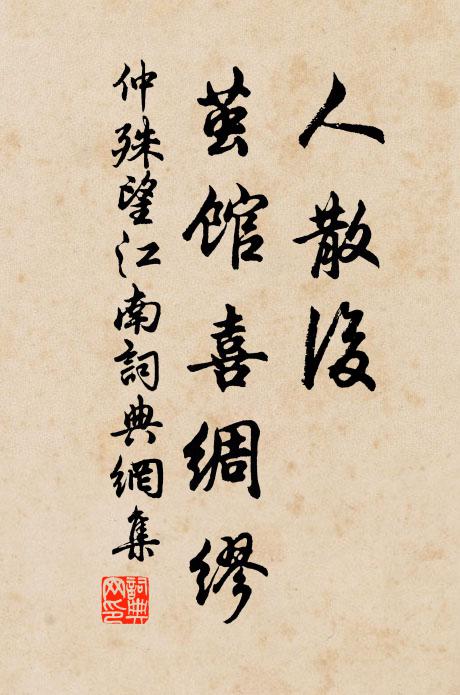 人散後
茧館喜綢繆
仲殊望江南詞典網集
詞典
网印